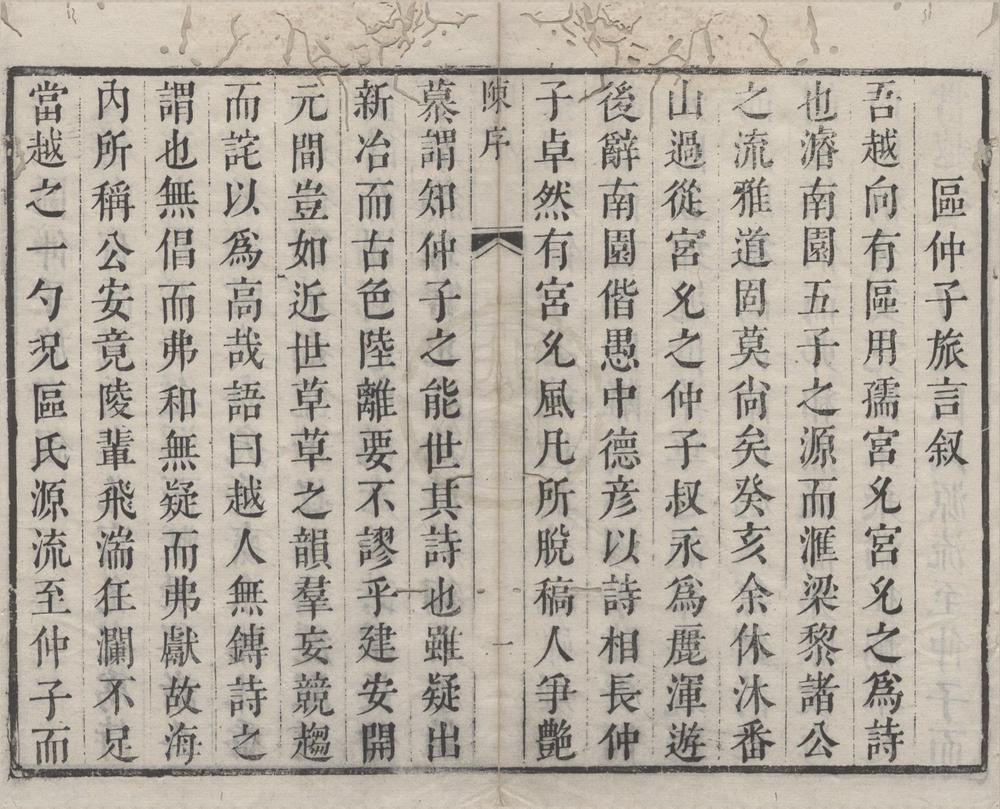 區仲子旅言叙
吾越向有區用孺宮允宮允之爲詩
也濬南園五子之源而滙梁黎諸公
之流雅道固莫尙矣癸亥余休沐番
山過從宮允之仲子叔永爲麗渾遊
後辭南園偕愚中德彦以詩相長仲
子卓然有宮允風凡所脫稿人爭艷
陳序
一
慕謂知仲子之能世其詩也雖疑出
新冶而古色陸離要不謬乎建安開
元間豈如近世草草之韻羣妄競趨
而詫以爲高哉語曰越人無鎛詩之
謂也無倡而弗和無疑而弗獻故海
內所稱公安竟陵輩飛湍狂瀾不足
當越之一勺况區氏源流至仲子而